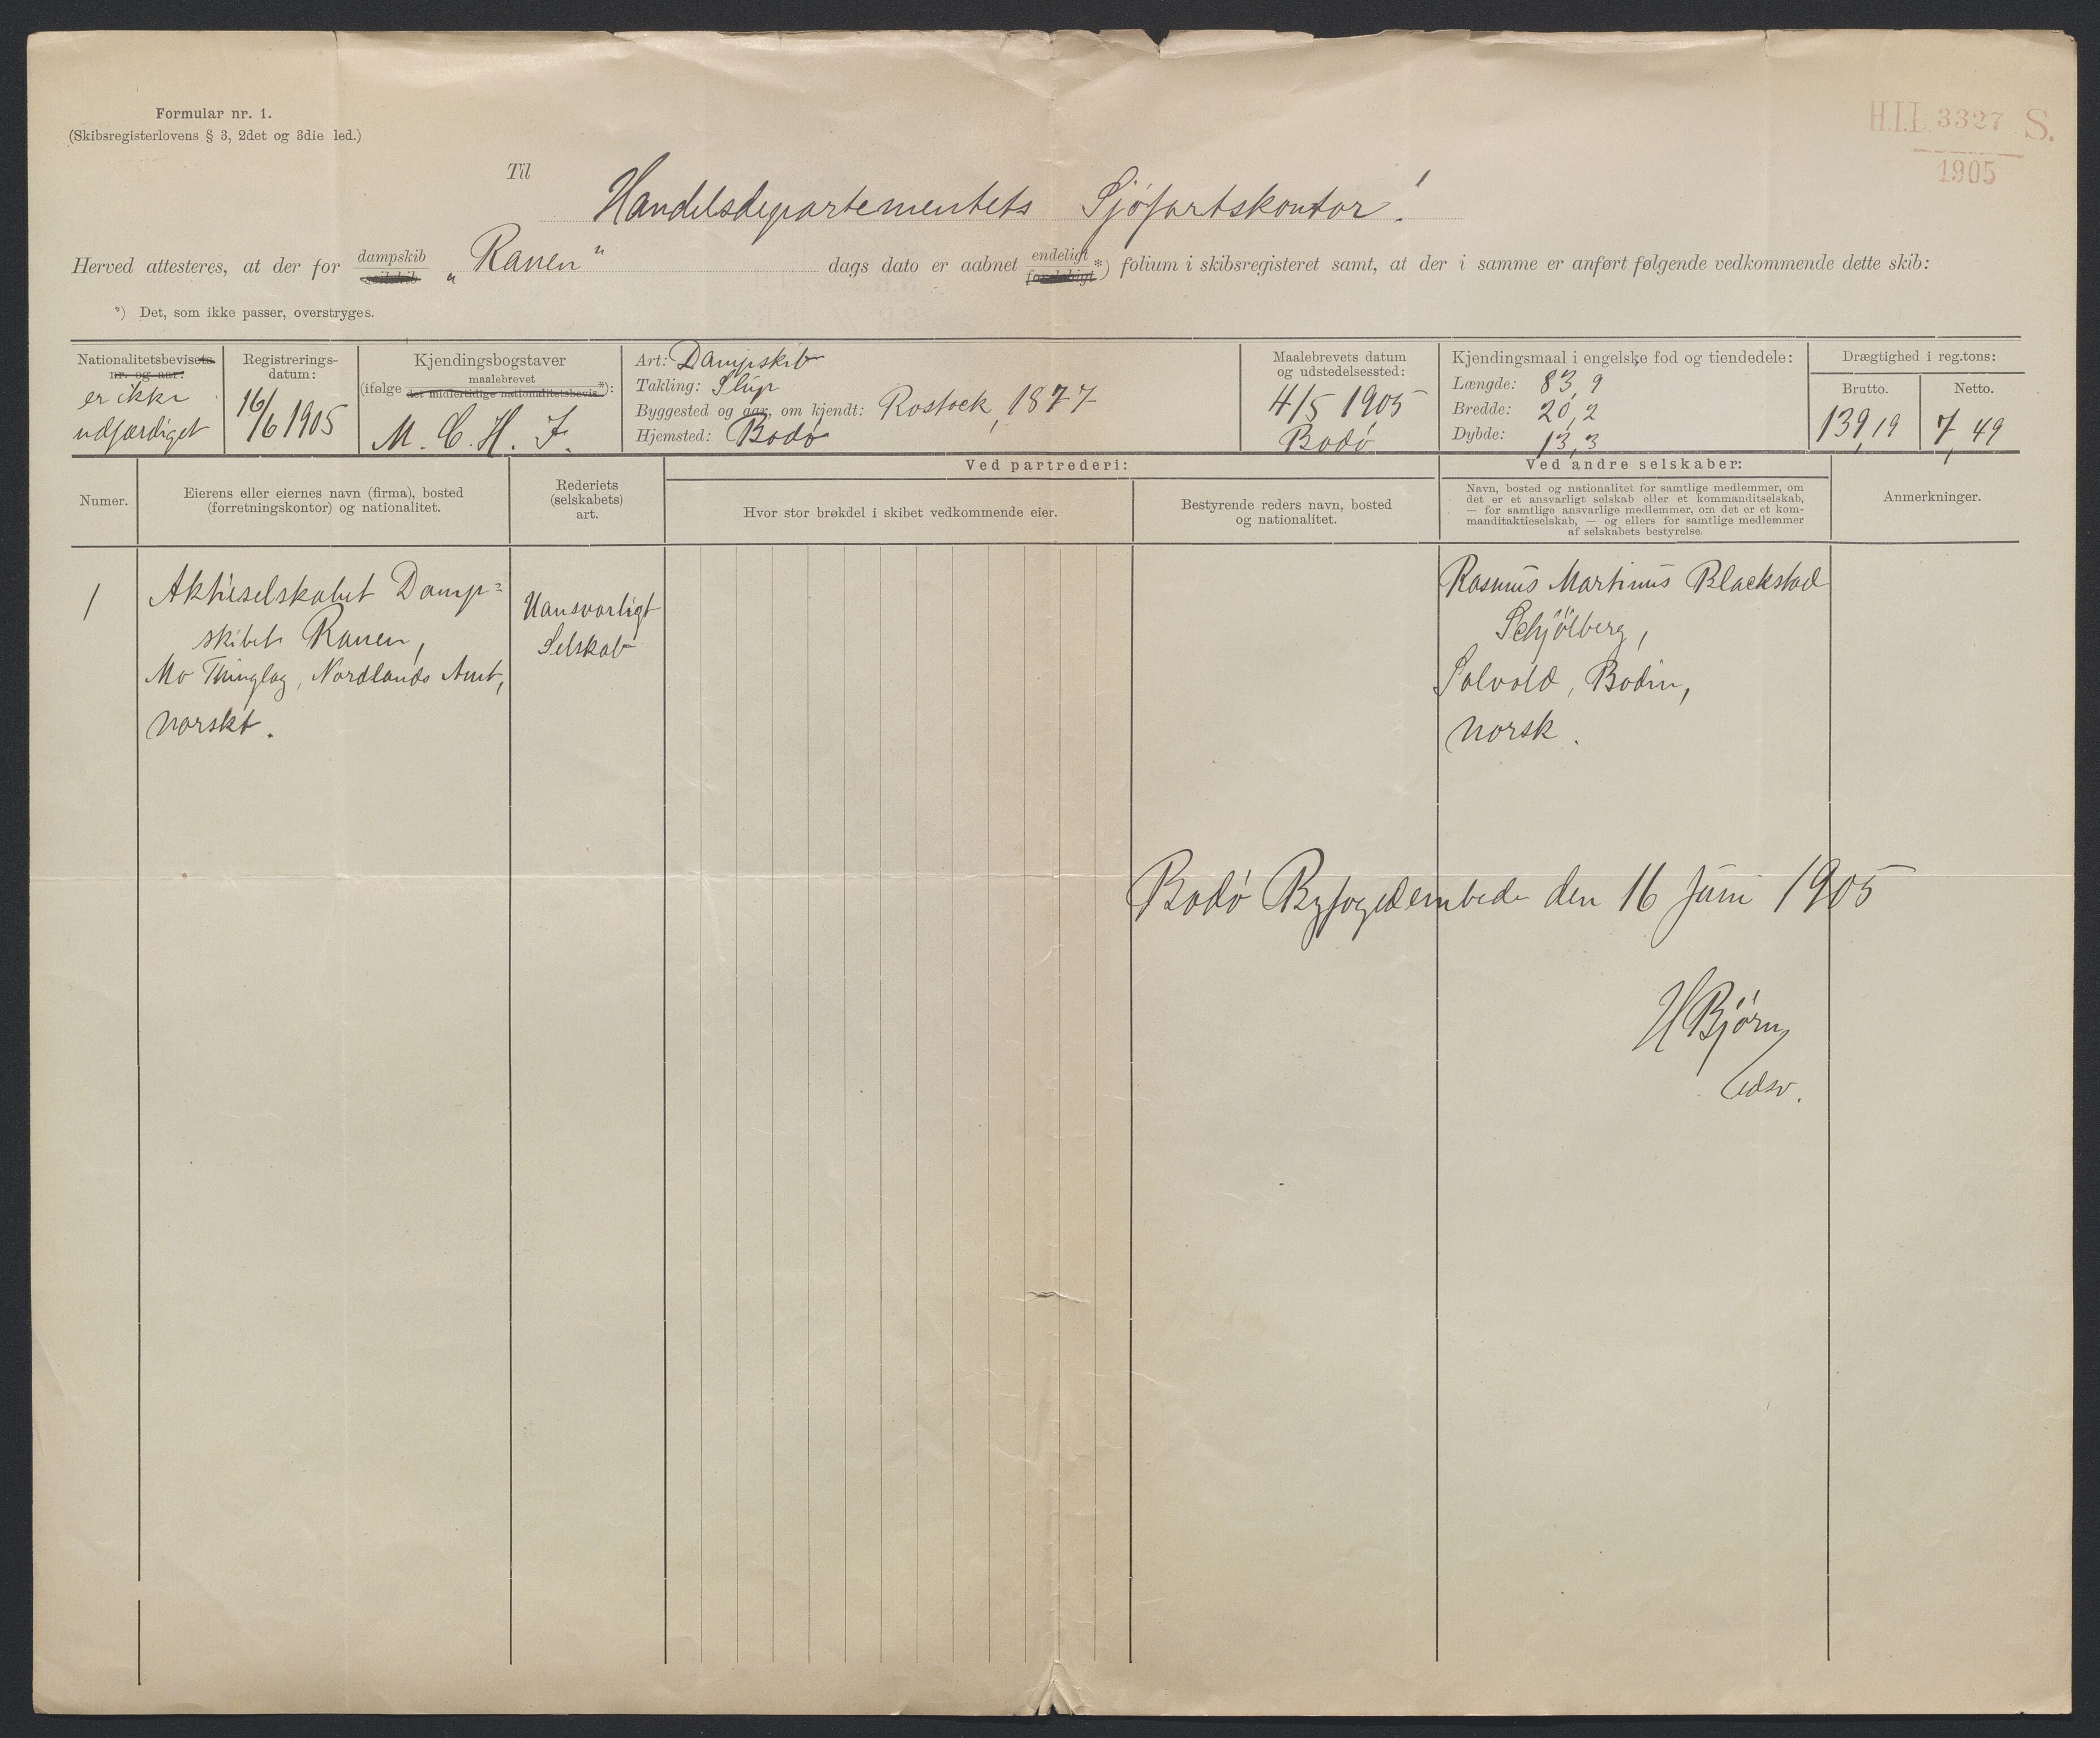 Formular nr. 1.
(Skibsregisterlovens § 3, 2det og 3die led.)
H.I.L 3327 S.
1905
Til
Handelsdepartementets Sjøfartskontor!
Herved attesteres, at der for dampskib seilskib „Ranen“ dags dato er aabnet endeligt foreløbigt *) folium i skibsregisteret samt, at der i samme er anført følgende vedkommende dette skib:
*) Det, som ikke passer, overstryges.
Nationalitetsbevisets
nr. og aar:
er ikke
udfærdiget
Registrerings-
datum:
16/6 1905
Kjendingsbogstaver
(ifølge maalebrevet det midlertidige nationalitetsbevis *):
M. C. H. F.
Art: Dampskib
Takling: Slup
Byggested og aar, om kjendt: Rostock, 1877
Hjemsted: Bodø
Maalebrevets datum
og udstedelsessted:
4/5 1905
Bodø
Kjendingsmaal i engelske fod og tiendedele:
Længde: 83,9
Bredde: 20,2
Dybde: 13,3
Drægtighed i reg.tons:
Brutto.
139,19
Netto.
7,49
Numer.
Eierens eller eiernes navn (firma), bosted
(forretningskontor) og nationalitet.
Rederiets
(selskabets)
art.
Ved partrederi:
Hvor stor brøkdel i skibet vedkommende eier.
Bestyrende reders navn, bosted
og nationalitet.
Ved andre selskaber:
Navn, bosted og nationalitet for samtlige medlemmer, om
det er et ansvarligt selskab eller et kommanditselskab,
— for samtlige ansvarlige medlemmer, om det er et kom-
manditaktieselskab, — og ellers for samtlige medlemmer
af selskabets bestyrelse.
Anmerkninger.
1
Aktieselskabet Damp=
skibet Ranen,
Mo Thinglag, Nordlands Amt,
norskt.
Uansvarligt
Selskab
Rasmus Martinus Blackstad
Schjölberg,
Solvold, Bodin,
norsk.
Bodø Byfogedembede den 16 Juni 1905
H Bjørn